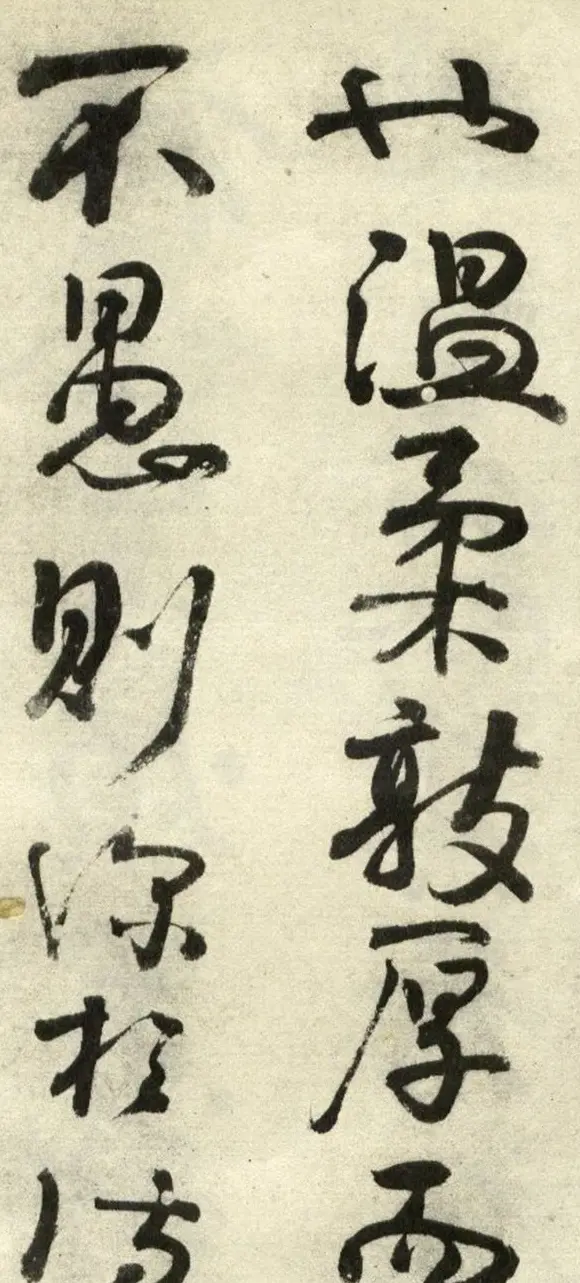 也温柔敦厚而
不愚則深於詩